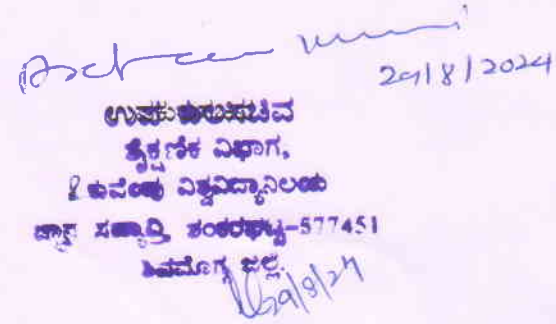 29/8/2024
ಉಪಕುಲಸಚಿವ
ಶೈಕ್ಷಣಿಕ ವಿಭಾಗ,
ಕುವೆಂಪು ವಿಶ್ವವಿದ್ಯಾನಿಲಯ
ಜ್ಞಾನ ಸಹ್ಯಾದ್ರಿ, ಶಂಕರಘಟ್ಟ-577451
ಶಿವಮೊಗ್ಗ ಜಿಲ್ಲೆ.
29/8/24